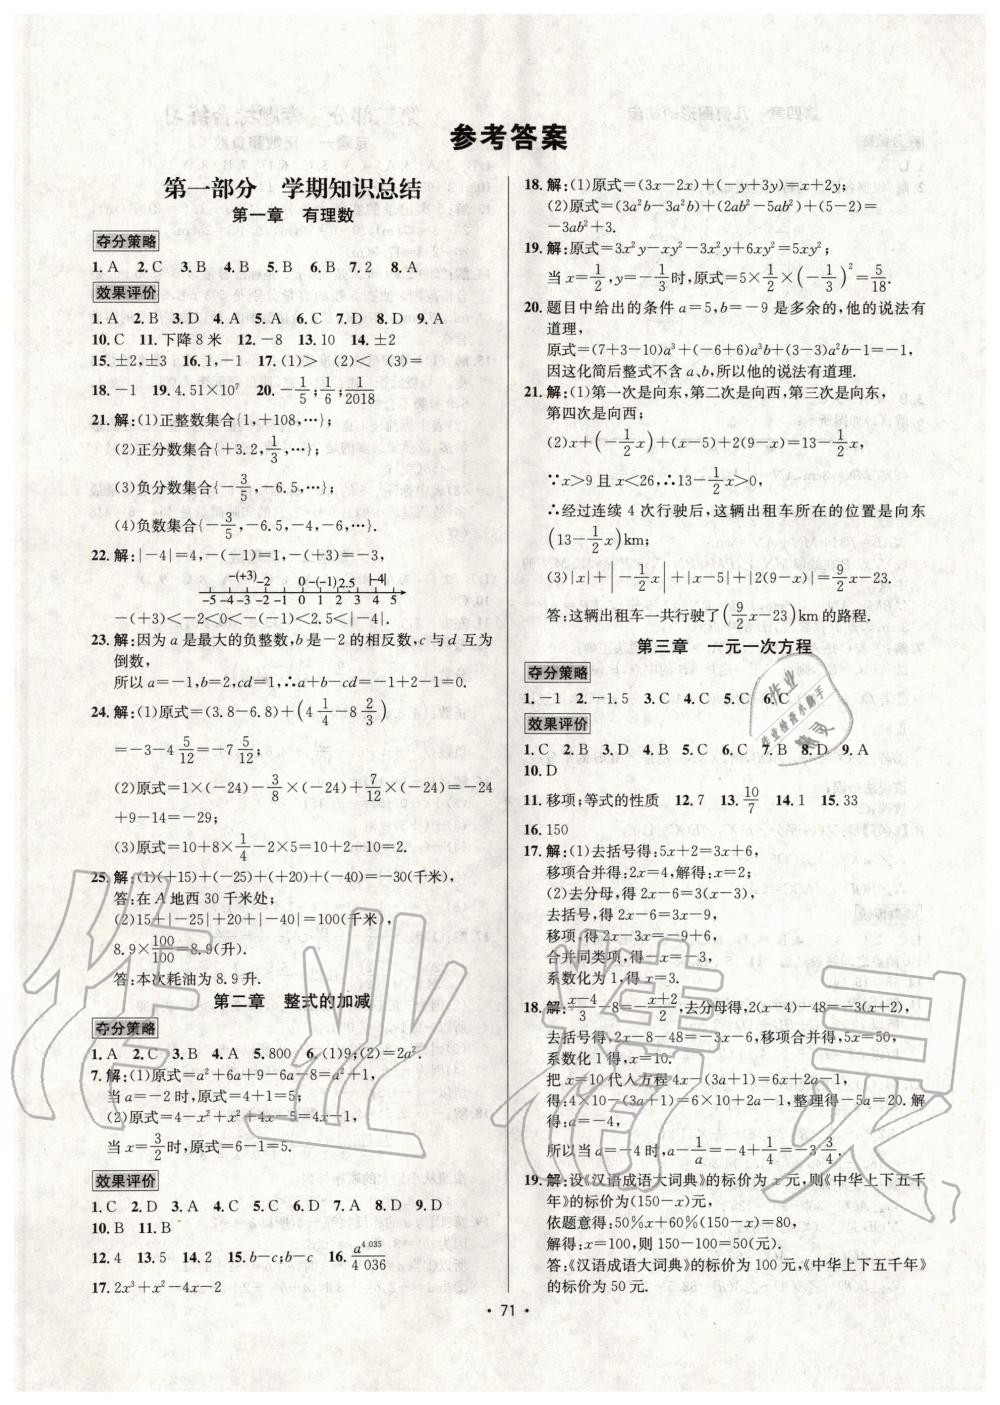 参考答案
第一部分 学期知识总结
第一章 有理数
夺分策略
1. A 2. C 3. B 4. B 5. B 6. B 7. 2 8. A
效果评价
1. A 2. B 3. D 4. A 5. A 6. C 7. D 8. D 9. A
10. C 11. 下降 8 米 12. -8 13. 10 14. ±2
15. ±2,±3 16. 1,-1 17. (1)> (2)< (3)=
18. -1 19. 4.51×10⁷ 20. -1/5;1/6;1/2018
21. 解:(1)正整数集合{1,+108,…};
(2)正分数集合{+3.2,1/3,…};
(3)负分数集合{-3/5,-6.5,…};
(4)负数集合{-3/5,-6.5,-4,-6,…}.
22. 解:|-4|=4,-(-1)=1,-(+3)=-3,
-(+3) -2 0 -(-1) 2.5 |-4|
-5 -4 -3 -2 -1 0 1 2 3 4 5
-(+3)<-2<0<-(-1)<2.5<|-4|.
23. 解:因为 a 是最大的负整数,b 是-2 的相反数,c 与 d 互为
倒数,
所以 a=-1,b=2,cd=1,∴a+b-cd=-1+2-1=0.
24. 解:(1)原式=(3.8-6.8)+(4 1/4-8 2/3)
=-3-4 5/12=-7 5/12;
(2)原式=1×(-24)-3/8×(-24)+7/12×(-24)=-24
+9-14=-29;
(3)原式=10+8×1/4-2×5=10+2-10=2.
25. 解:(1)(+15)+(-25)+(+20)+(-40)=-30(千米),
答:在 A 地西 30 千米处;
(2)15+|-25|+20+|-40|=100(千米),
8.9×100/100=8.9(升).
答:本次耗油为 8.9 升.
第二章 整式的加减
夺分策略
1. A 2. C 3. B 4. A 5. 800 6. (1)9;(2)=2a².
7. 解:(1)原式=a²+6a+9-6a-8=a²+1,
当 a=-2 时,原式=4+1=5;
(2)原式=4-x²+x²+4x-5=4x-1,
当 x=3/2时,原式=6-1=5.
效果评价
1. C 2. D 3. A 4. C 5. C 6. A 7. D 8. D 9. D
10. B 11. B
12. 4 13. 5 14. 2 15. b-c;b-c 16. a^4 035/4 036
17. 2x³+x²-4x-2
18. 解:(1)原式=(3x-2x)+(-y+3y)=x+2y;
(2)原式=(3a²b-3a²b)+(2ab²-5ab²)+(5-2)=
-3ab²+3.
19. 解:原式=3x²y-xy²-3x²y+6xy²=5xy²;
当 x=1/2,y=-1/3时,原式=5×1/2×(-1/3)²=5/18.
20. 题目中给出的条件 a=5,b=-9 是多余的,他的说法有
道理,
原式=(7+3-10)a³+(-6+6)a³b+(3-3)a²b-1=-1,
因这化简后整式不含 a、b,所以他的说法有道理.
21. 解:(1)第一次是向东,第二次是向西,第三次是向东,
第四次是向西;
(2)x+(-1/2x)+(x-5)+2(9-x)=13-1/2x,
∵x>9 且 x<26,∴13-1/2x>0,
∴经过连续 4 次行驶后,这辆出租车所在的位置是向东
(13-1/2x)km;
(3)|x|+|-1/2x|+|x-5|+|2(9-x)|=9/2x-23.
答:这辆出租车一共行驶了(9/2x-23)km 的路程.
第三章 一元一次方程
夺分策略
1. -1 2. -1.5 3. C 4. C 5. C 6. C
效果评价
1. C 2. B 3. D 4. B 5. C 6. C 7. B 8. D 9. A
10. D
11. 移项;等式的性质 12. 7 13. 10/7 14. 1 15. 33
16. 150
17. 解:(1)去括号得:5x+2=3x+6,
移项合并得:2x=4,解得:x=2;
(2)去分母,得 2x-6=3(3x-3),
去括号,得 2x-6=3x-9,
移项,得 2x-3x=-9+6,
合并同类项,得-x=-3,
系数化为 1,得 x=3.
18. 解:x-4/3-8=-x+2/2,去分母得,2(x-4)-48=-3(x+2),
去括号得,2x-8-48=-3x-6,移项合并得,5x=50,
系数化 1 得,x=10.
把 x=10 代入方程 4x-(3a+1)=6x+2a-1,
得:4×10-(3a+1)=6×10+2a-1,整理得-5a=20. 解
得:a=-4,
所以当 a=-4 时,a-1/a=-4+1/4=-3 3/4.
19. 解:设《汉语成语大词典》的标价为 x 元,则《中华上下五千
年》的标价为(150-x)元,
依题意得:50%x+60%(150-x)=80,
解得:x=100,则 150-100=50(元).
答:《汉语成语大词典》的标价为 100 元,《中华上下五千年》
的标价为 50 元.
· 71 ·
作业精灵